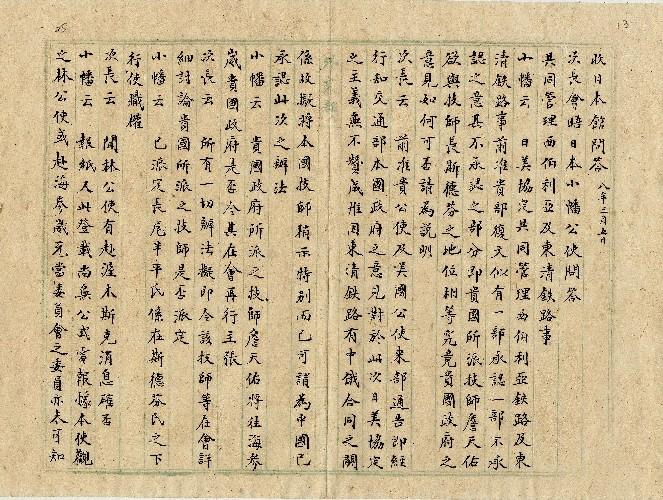 收日本館問答 八年三月五日
次長會晤日本小幡公使問答
共同管理西伯利亞及東清鉄路事
小幡云 日美協定共同管理西伯利亞鉄路及東
清鉄路事前准貴部復文似有一部承認一部不承
認之意其不承認之部分即貴國所派技師詹天佑
欲與技師長斯德芬之地位相等究竟貴國政府之
意見如何可否請為說明
次長云 前准貴公使及美國公使來部通告即經
行知交通部本國政府之意見對於此次日美協定
之主義無不贊成惟因東清鉄路有中俄合同之關
係故擬將本國技師稍示特別而已可謂為中國已
承認此次之辦法
小幡云 貴國政府所派之技師詹天佑將往海參
崴貴國政府是否令其在會再行主張
次長云 所有一切辦法擬即令該技師等在會詳
細討論貴國所派之技師是否派定
小幡云 已派定長尾半平氏係在斯德芬氏之下
行使職權
次長云 聞林公使有赴渥木斯克消息確否
小幡云 報紙又此登載尚無公式電報懷本使觀
之林公使或赴海參崴充當委員會之委員亦未可知
13